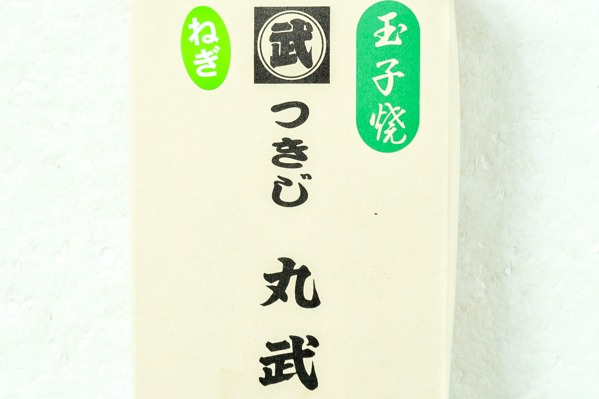 玉子焼
武
つきじ 丸武
ねぎ